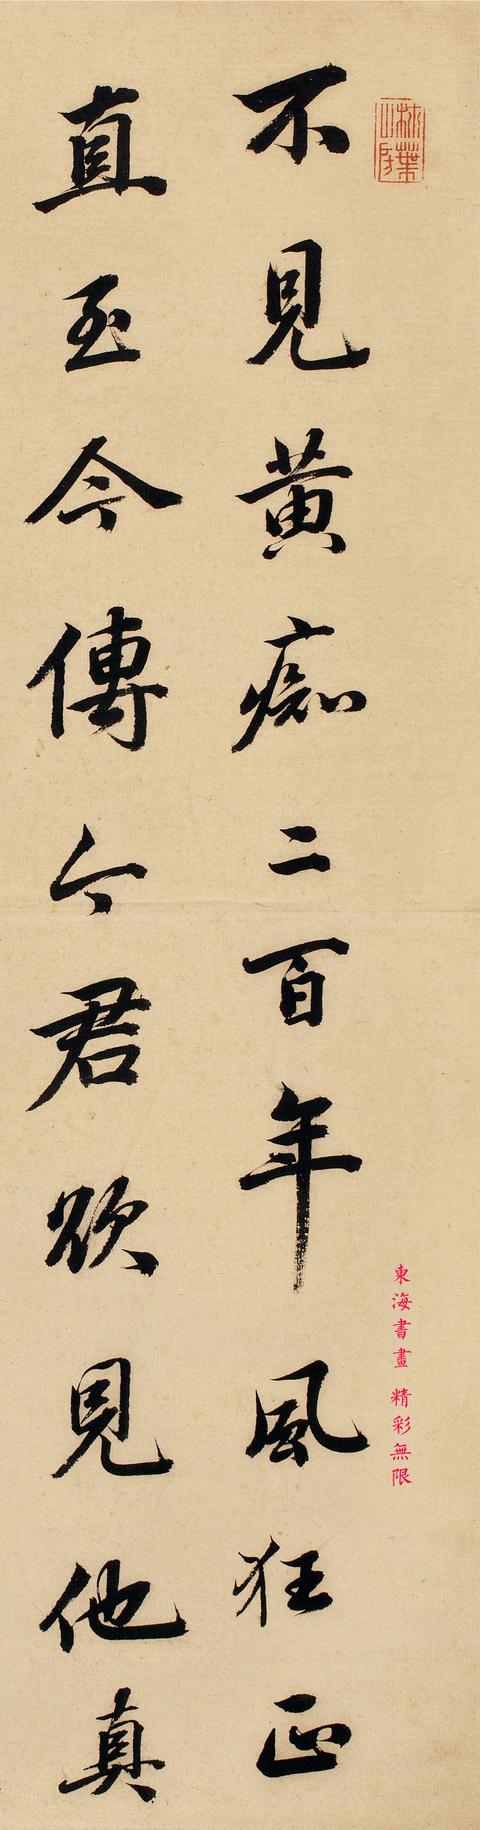 不見黄痴二百年風狂正
直至今傳今君欲見他真
東海書畫 精彩無限